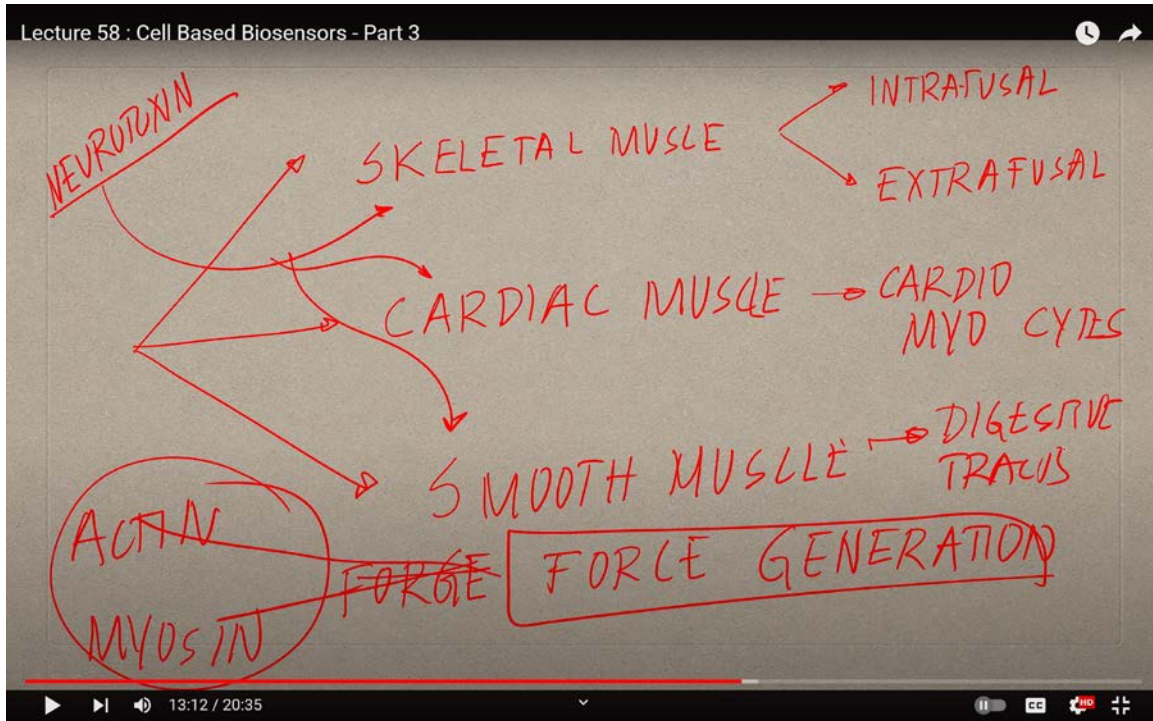 Lecture 58 : Cell Based Biosensors - Part 3
NEUROTOXIN
SKELETAL MUSCLE
INTRAFUSAL
EXTRAFUSAL
CARDIAC MUSCLE
CARDIO
MYO CYTES
SMOOTH MUSCLE
DIGESTIVE
TRACTS
ACTIN
MYOSIN
FORGE
FORCE GENERATION
13:12 / 20:35
CC
HD